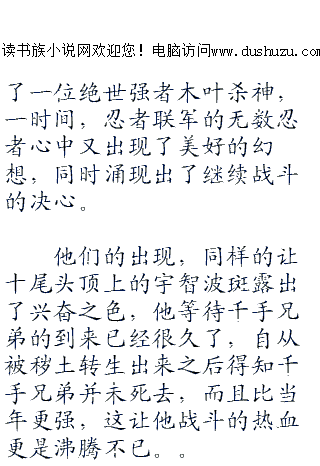 读书族小说网欢迎您！电脑访问www.dushuzu.com
了一位绝世强者木叶杀神，
一时间，忍者联军的无数忍
者心中又出现了美好的幻
想，同时涌现出了继续战斗
的决心。
他们的出现，同样的让
十尾头顶上的宇智波斑露出
了兴奋之色，他等待千手兄
弟的到来已经很久了，自从
被秽土转生出来之后得知千
手兄弟并未死去，而且比当
年更强，这让他战斗的热血
更是沸腾不已。。